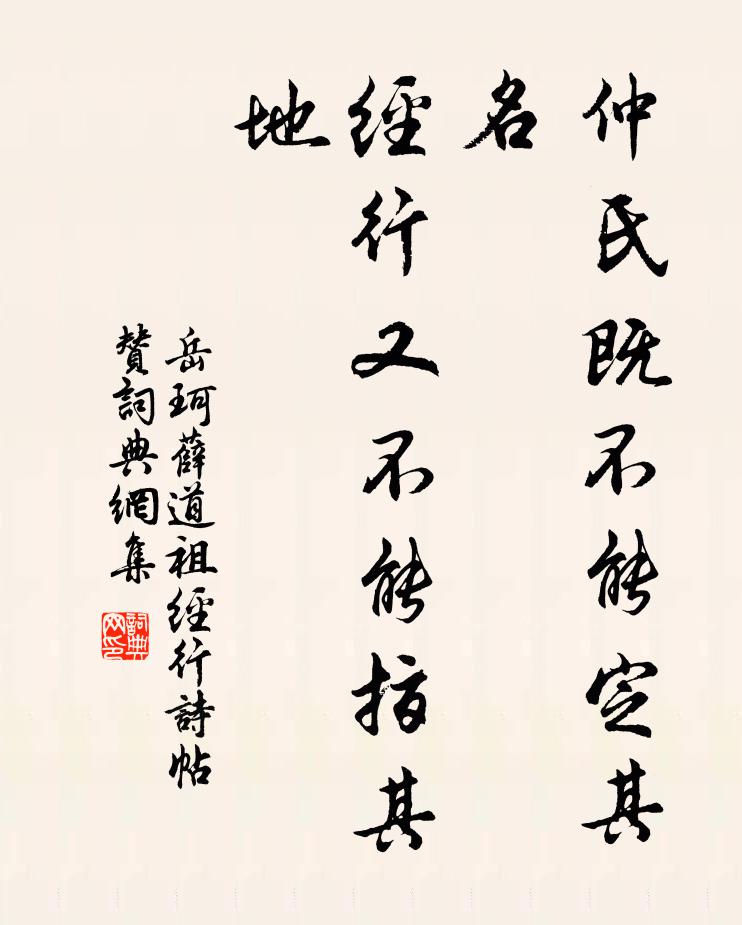 仲氏既不能定其
名
經行又不能指其
地
岳珂薛道祖經行詩帖
贊詞典網集
詞典
网印